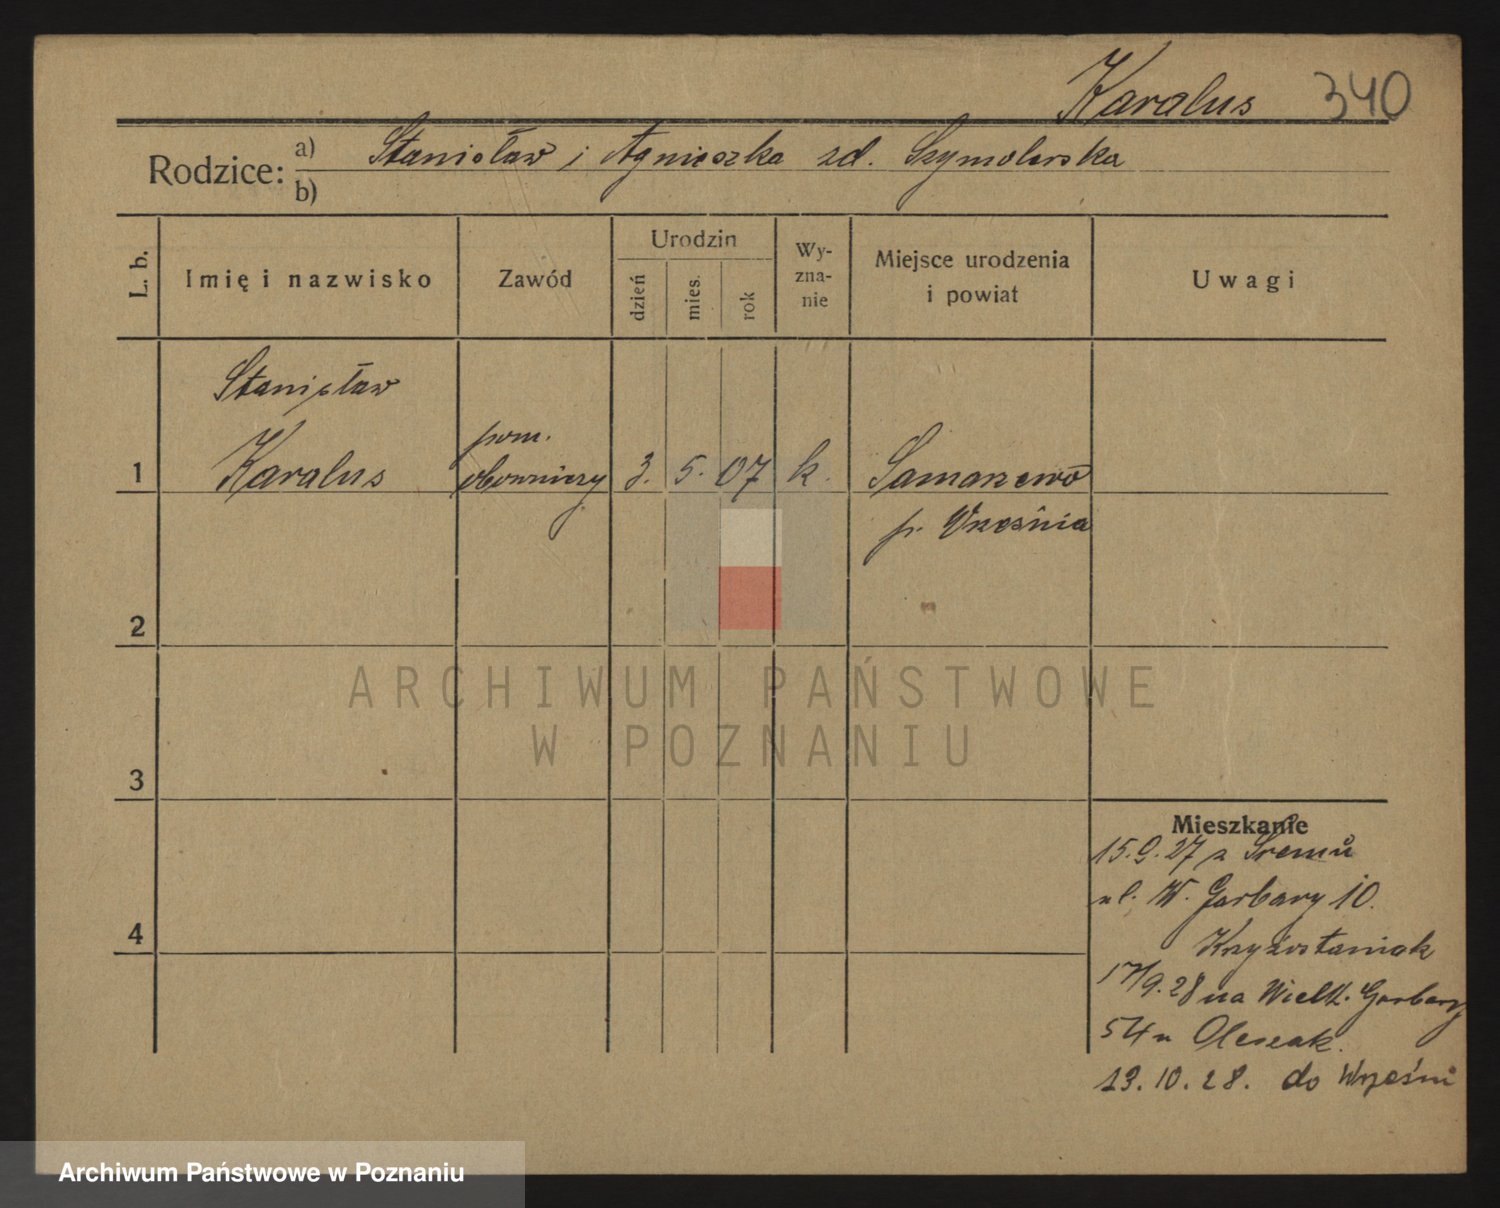 Karalus 340
Rodzice: a) Stanisław i Agnieszka zd. Szymolewska
b)
L. b.
Imię i nazwisko
Zawód
Urodzin
dzień
mies.
rok
Wy-
zna-
nie
Miejsce urodzenia
i powiat
Uwagi
Stanisław
pom.
1 Karalus 3. 5. 07 k. Samarzewo
p. Września
2
3
4
Mieszkanie
15.9.27 z Śremu
ul. W. Garbary 10.
Krzyżostaniak
17/9.28 na Wielk. Garbary
54 u Oleszak.
13.10.28. do Wrześni
ARCHIWUM PAŃSTWOWE
W POZNANIU
Archiwum Państwowe w Poznaniu